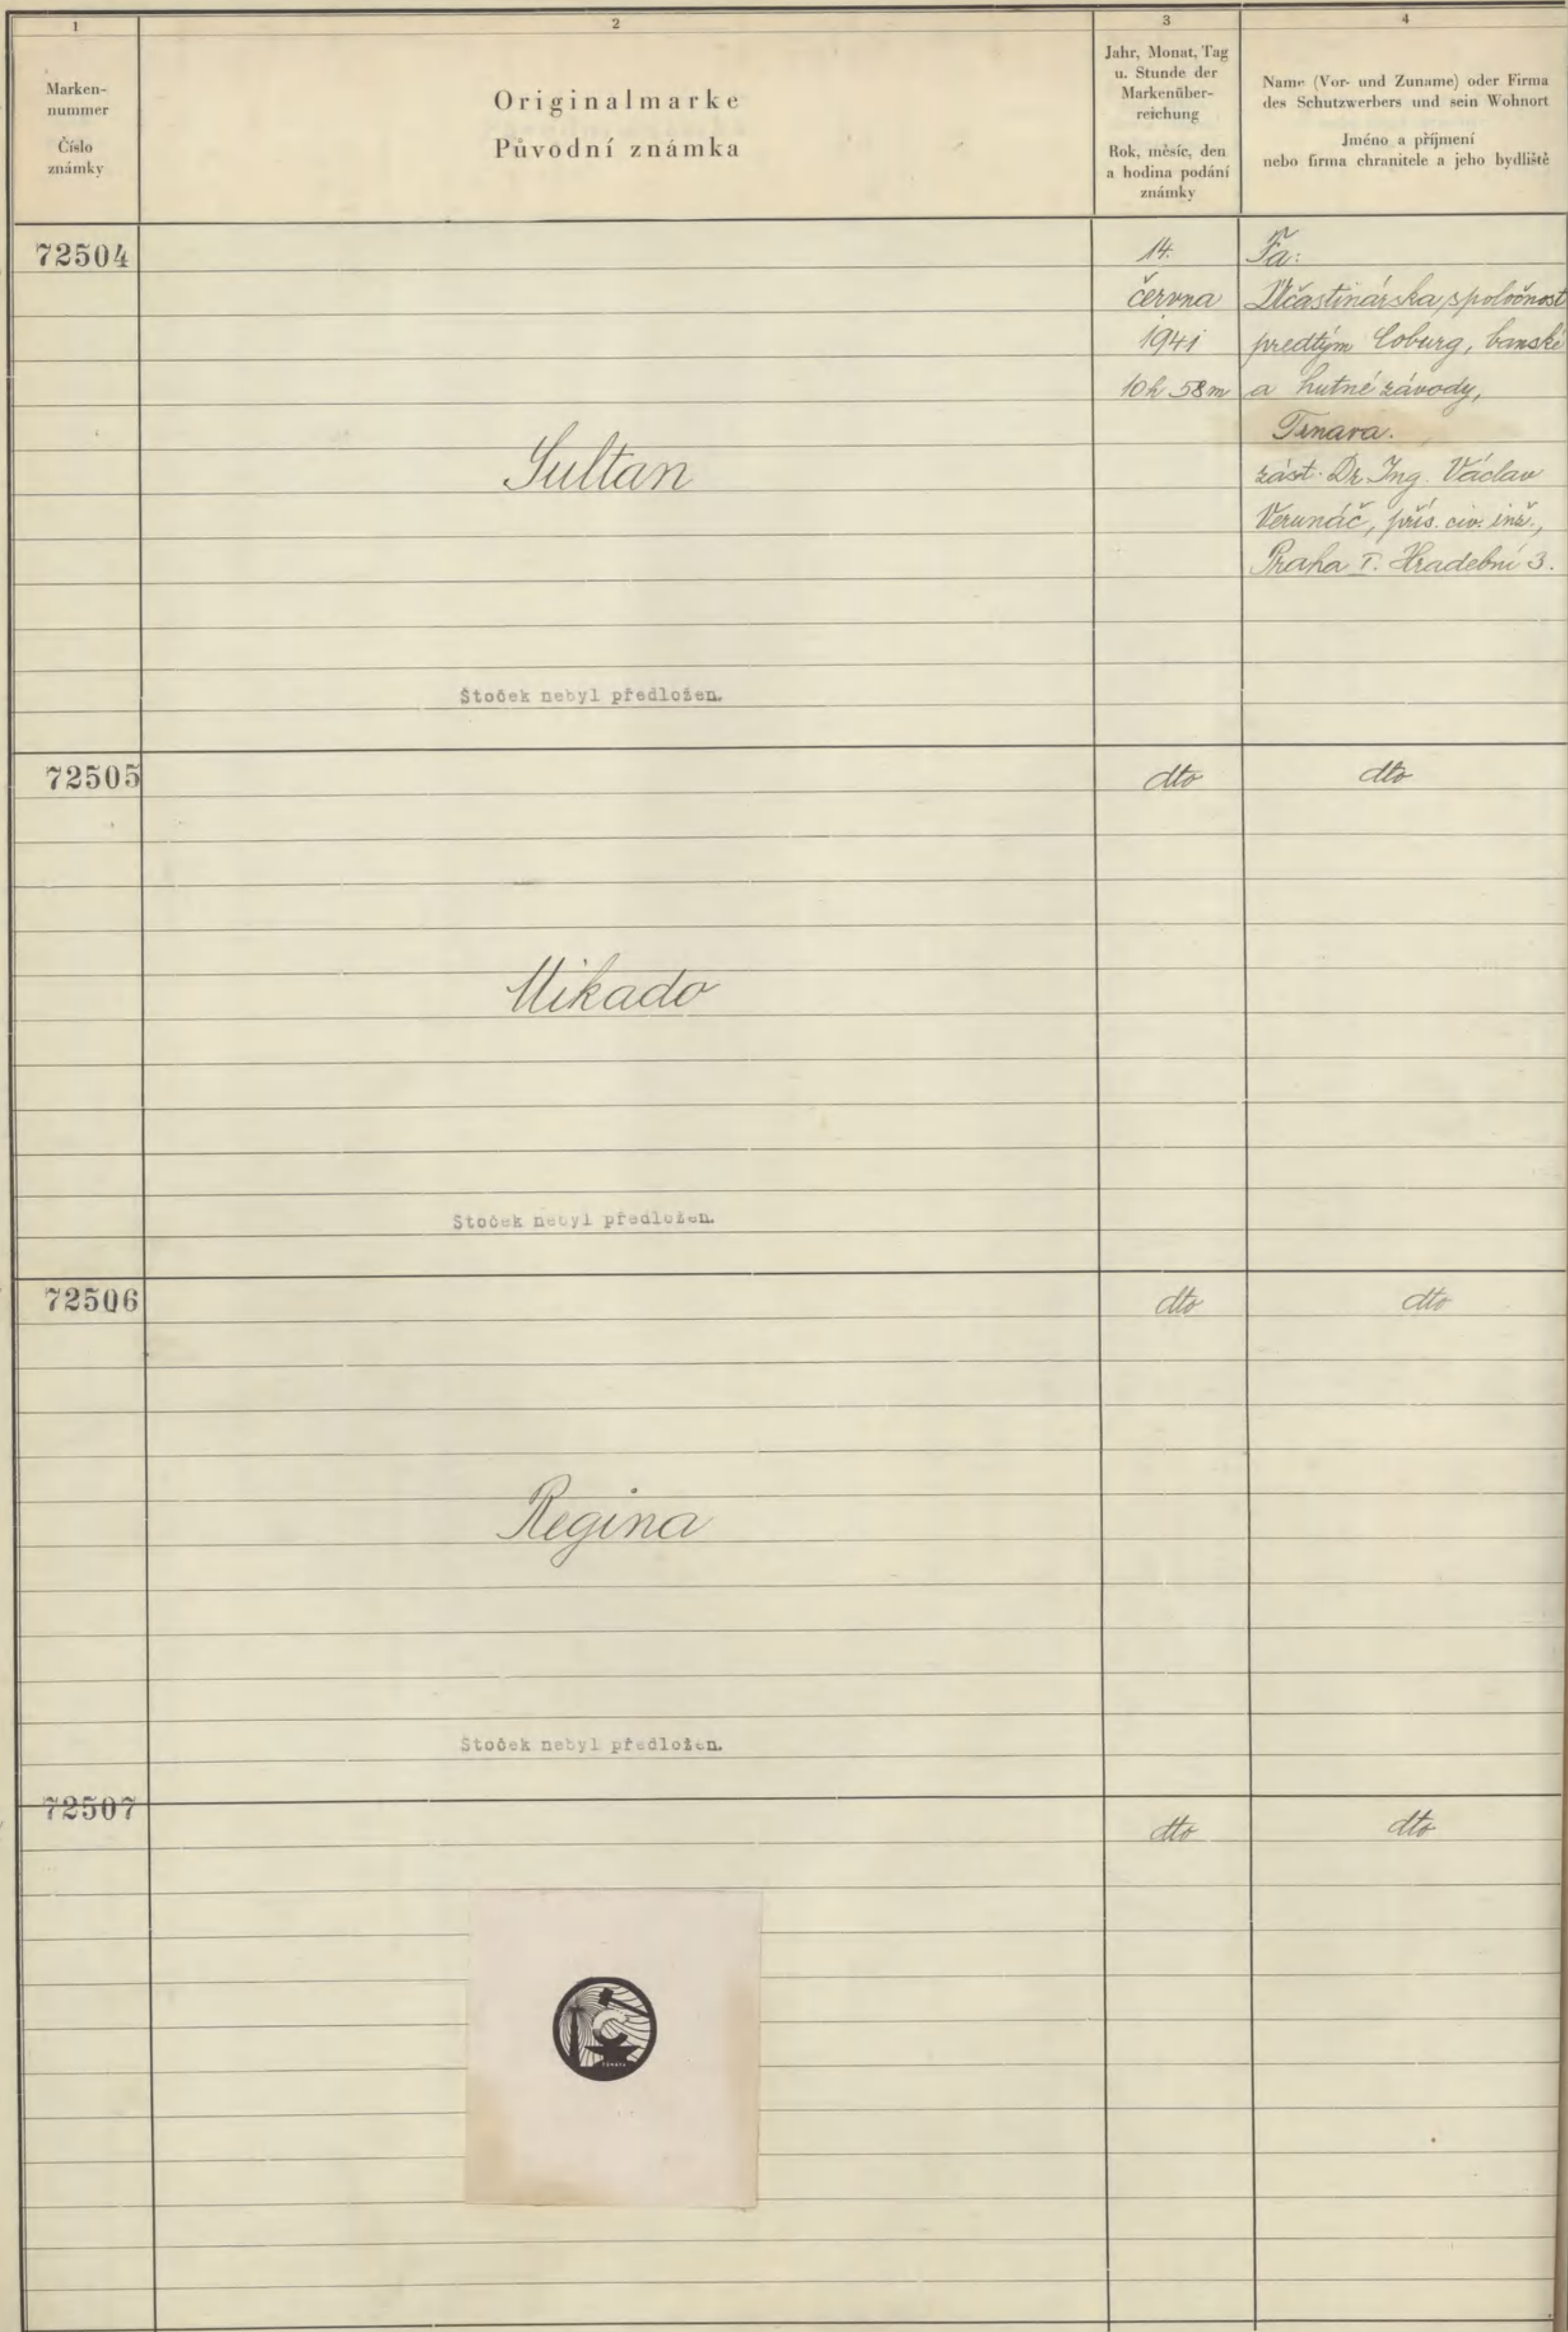 1
2
3
4
Marken-
nummer
Číslo
známky
Originalmarke
Původní známka
Jahr, Monat, Tag
u. Stunde der
Markenüber-
reichung
Rok, měsíc, den
a hodina podání
známky
Name (Vor- und Zuname) oder Firma
des Schutzwerbers und sein Wohnort
Jméno a příjmení
nebo firma chranitele a jeho bydliště
72504
Sultan
Štoček nebyl předložen.
14.
června
1941
10h 58m
Fa:
Účastinárska spoločnost
predtým Coburg, banské
a hutné závody,
Trnava.
zást. Dr. Ing. Václav
Verunáč, přís. civ. inž.,
Praha I. Hradební 3.
72505
Mikado
Štoček nebyl předložen.
dto
dto
72506
Regina
Štoček nebyl předložen.
dto
dto
72507
dto
dto